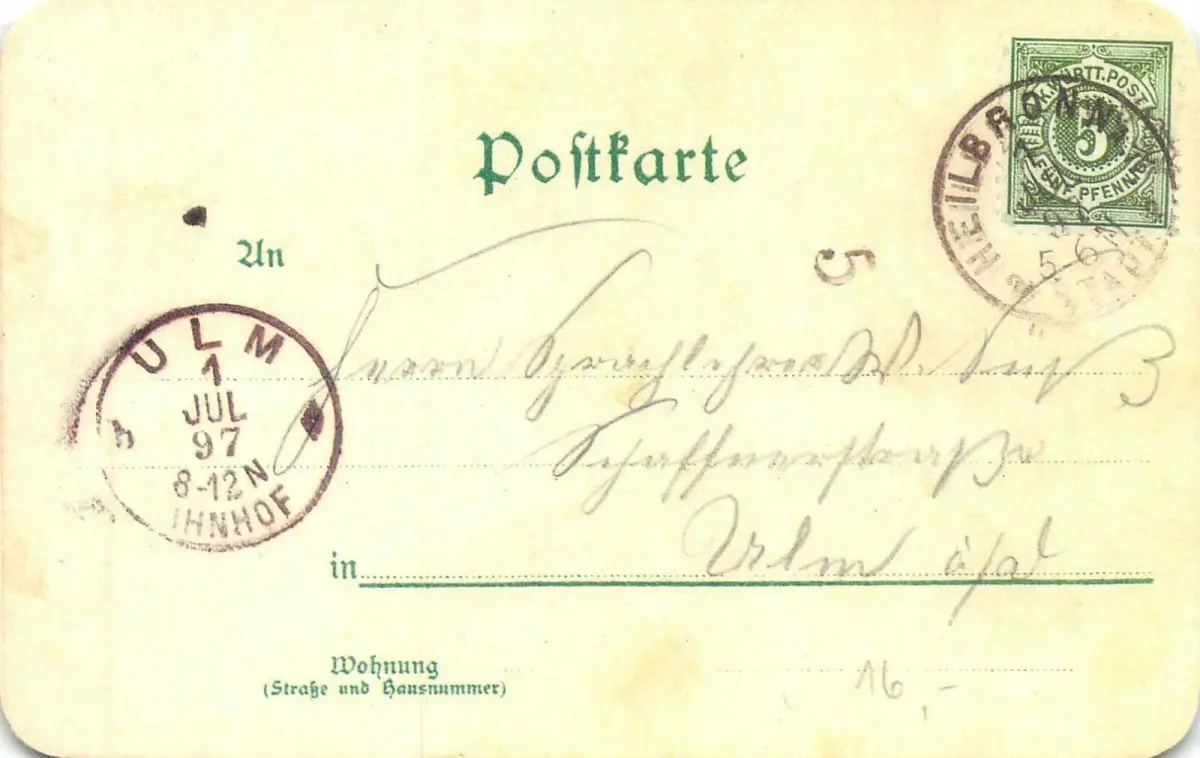 Postkarte
K.WÜRTT.POST
5
FÜNF PFENNIG
HEILBRONN
5 6 N
STADT
An
5
ULM
1
JUL
97
8-12 N
HNHOF
Herrn Sprachlehrer W. Süß
Schaffnerstraße
in Ulm a/d
Wohnung
(Straße und Hausnummer)
16,-